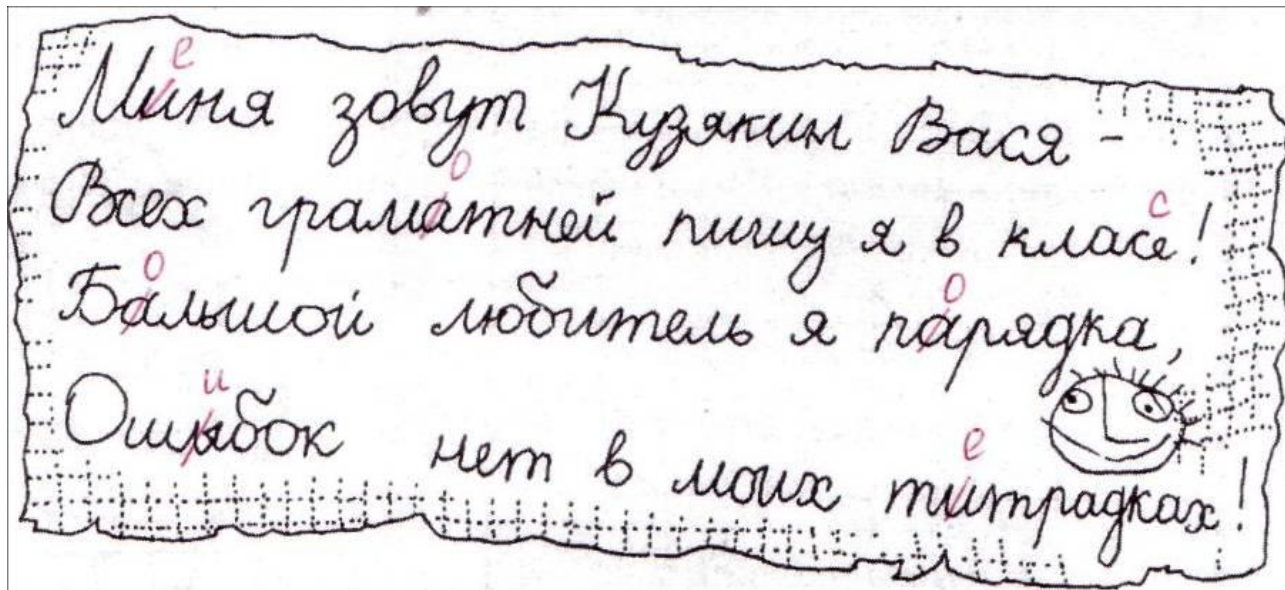 е
Миня зовут Кузякин Вася -
о с
Всех граматней пишу я в класе!
о о
Балышой любитель я парядка,
и е
Ошыбок нет в моих титрадках!